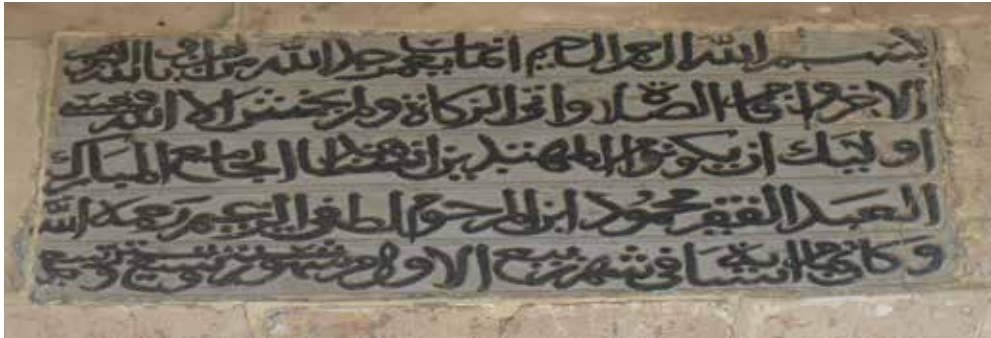 بسم الله الرحمن الرحيم انما يعمر مساجد الله من امن بالله واليوم
الاخر واقام الصلاة واتى الزكاة ولم يخش الا الله فعسى
اوليك ان يكونوا من المهتدين انشا هذا الجامع المبارك
العبد الفقير محمود ابن المرحوم لطفي الرحيم رحمه الله
وكان في شهر ربيع الاول سنة تسع وتسعين